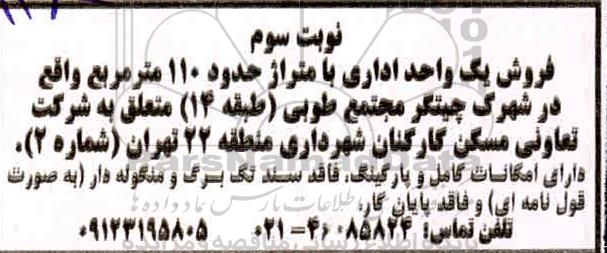 نوبت سوم
فروش یک واحد اداری با متراژ حدود ۱۱۰ مترمربع واقع
در شهرک چیتگر مجتمع طوبی (طبقه ۱۴) متعلق به شرکت
تعاونی مسکن کارکنان شهرداری منطقه ۲۲ تهران (شماره ۲).
دارای امکانات کامل و پارکینگ، فاقد سند تک برگ و منگوله دار (به صورت
قول نامه ای) و فاقد پایان کار،
تلفن تماس: ۴۶۰۸۵۸۲۴-۰۲۱ ۰۹۱۲۳۱۹۵۸۰۵